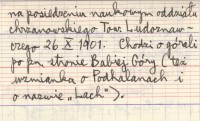 na posiedzeniu naukowym oddziału
chrzanowskiego Tow. Ludoznaw-
czego 26 X 1901. Chodzi o górali
po pn. stronie Babiej Góry (też
wzmianka o Podhalanach i
o nazwie „Lach").